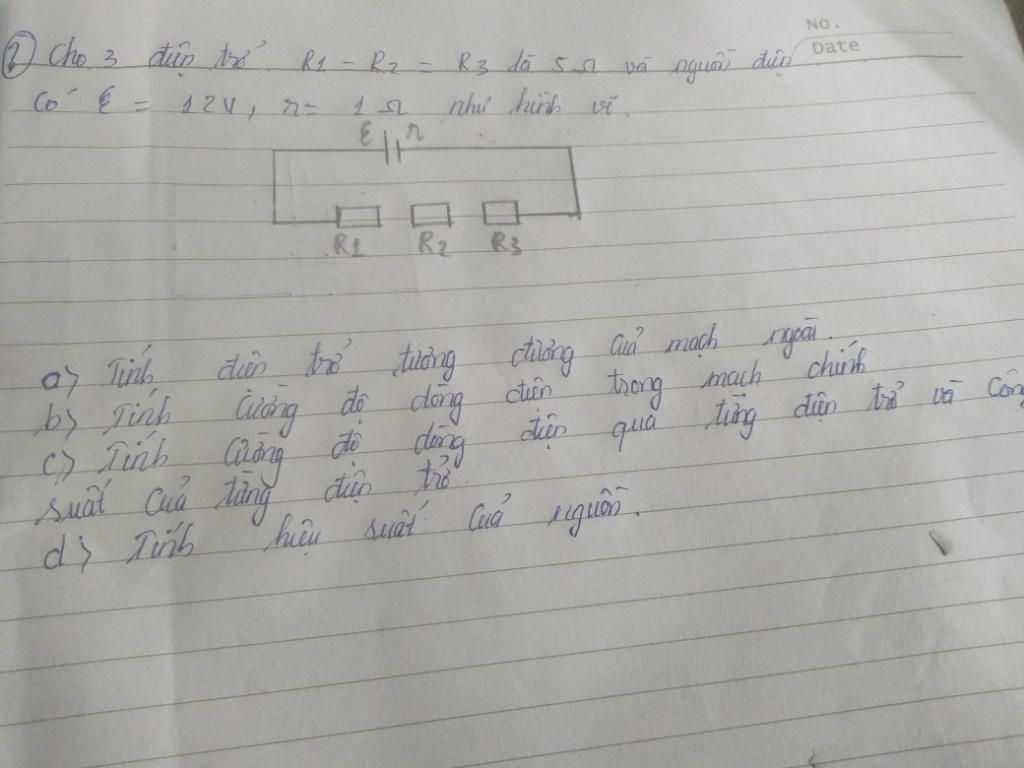 NO.
Date
2) Cho 3 điện trở R1 = R2 = R3 là 5Ω và nguồn điện
có ξ = 12V, r = 1Ω như hình vẽ.
ξ r
R1 R2 R3
a) Tính điện trở tương đương của mạch ngoài.
b) Tính cường độ dòng điện trong mạch chính
c) Tính cường độ dòng điện qua từng điện trở và công
suất của từng điện trở.
d) Tính hiệu suất của nguồn.